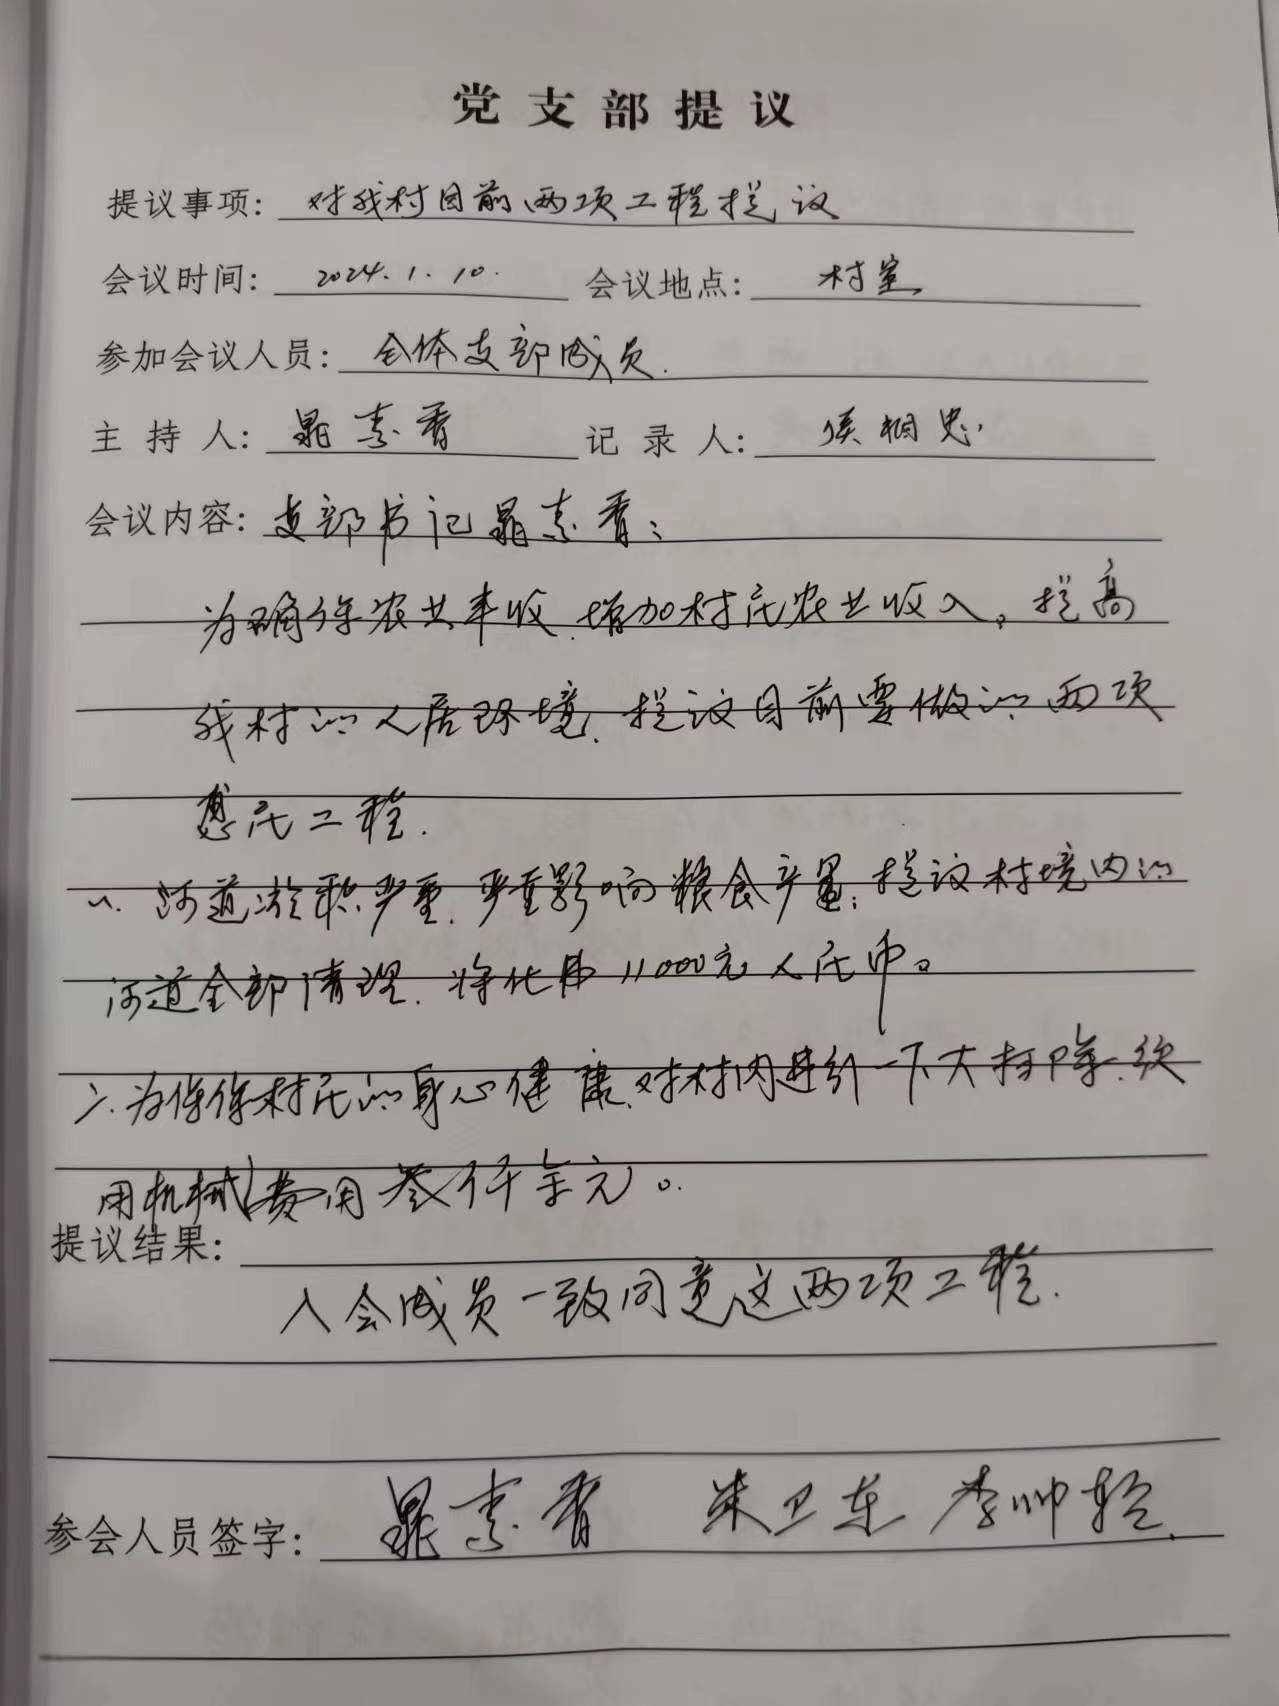 党支部提议
提议事项: 对我村目前两项工程提议
会议时间: 2024.1.10. 会议地点: 村室
参加会议人员: 全体支部成员.
主持人: 晁素香 记录人: 侯相忠
会议内容: 支部书记晁素香:
为确保农业丰收.增加村民农业收入。提高
我村的人居环境.提议目前要做的两项
惠民工程.
一.河道淤积严重.严重影响粮食产量;提议村境内的
河道全部清理.将花费11000元人民币。
二.为保障村民的身心健康.对村内进行一下大扫除.使
用机械费用叁仟余元。
提议结果:
入会成员一致同意这两项工程.
参会人员签字: 晁素香 朱卫东 李帅